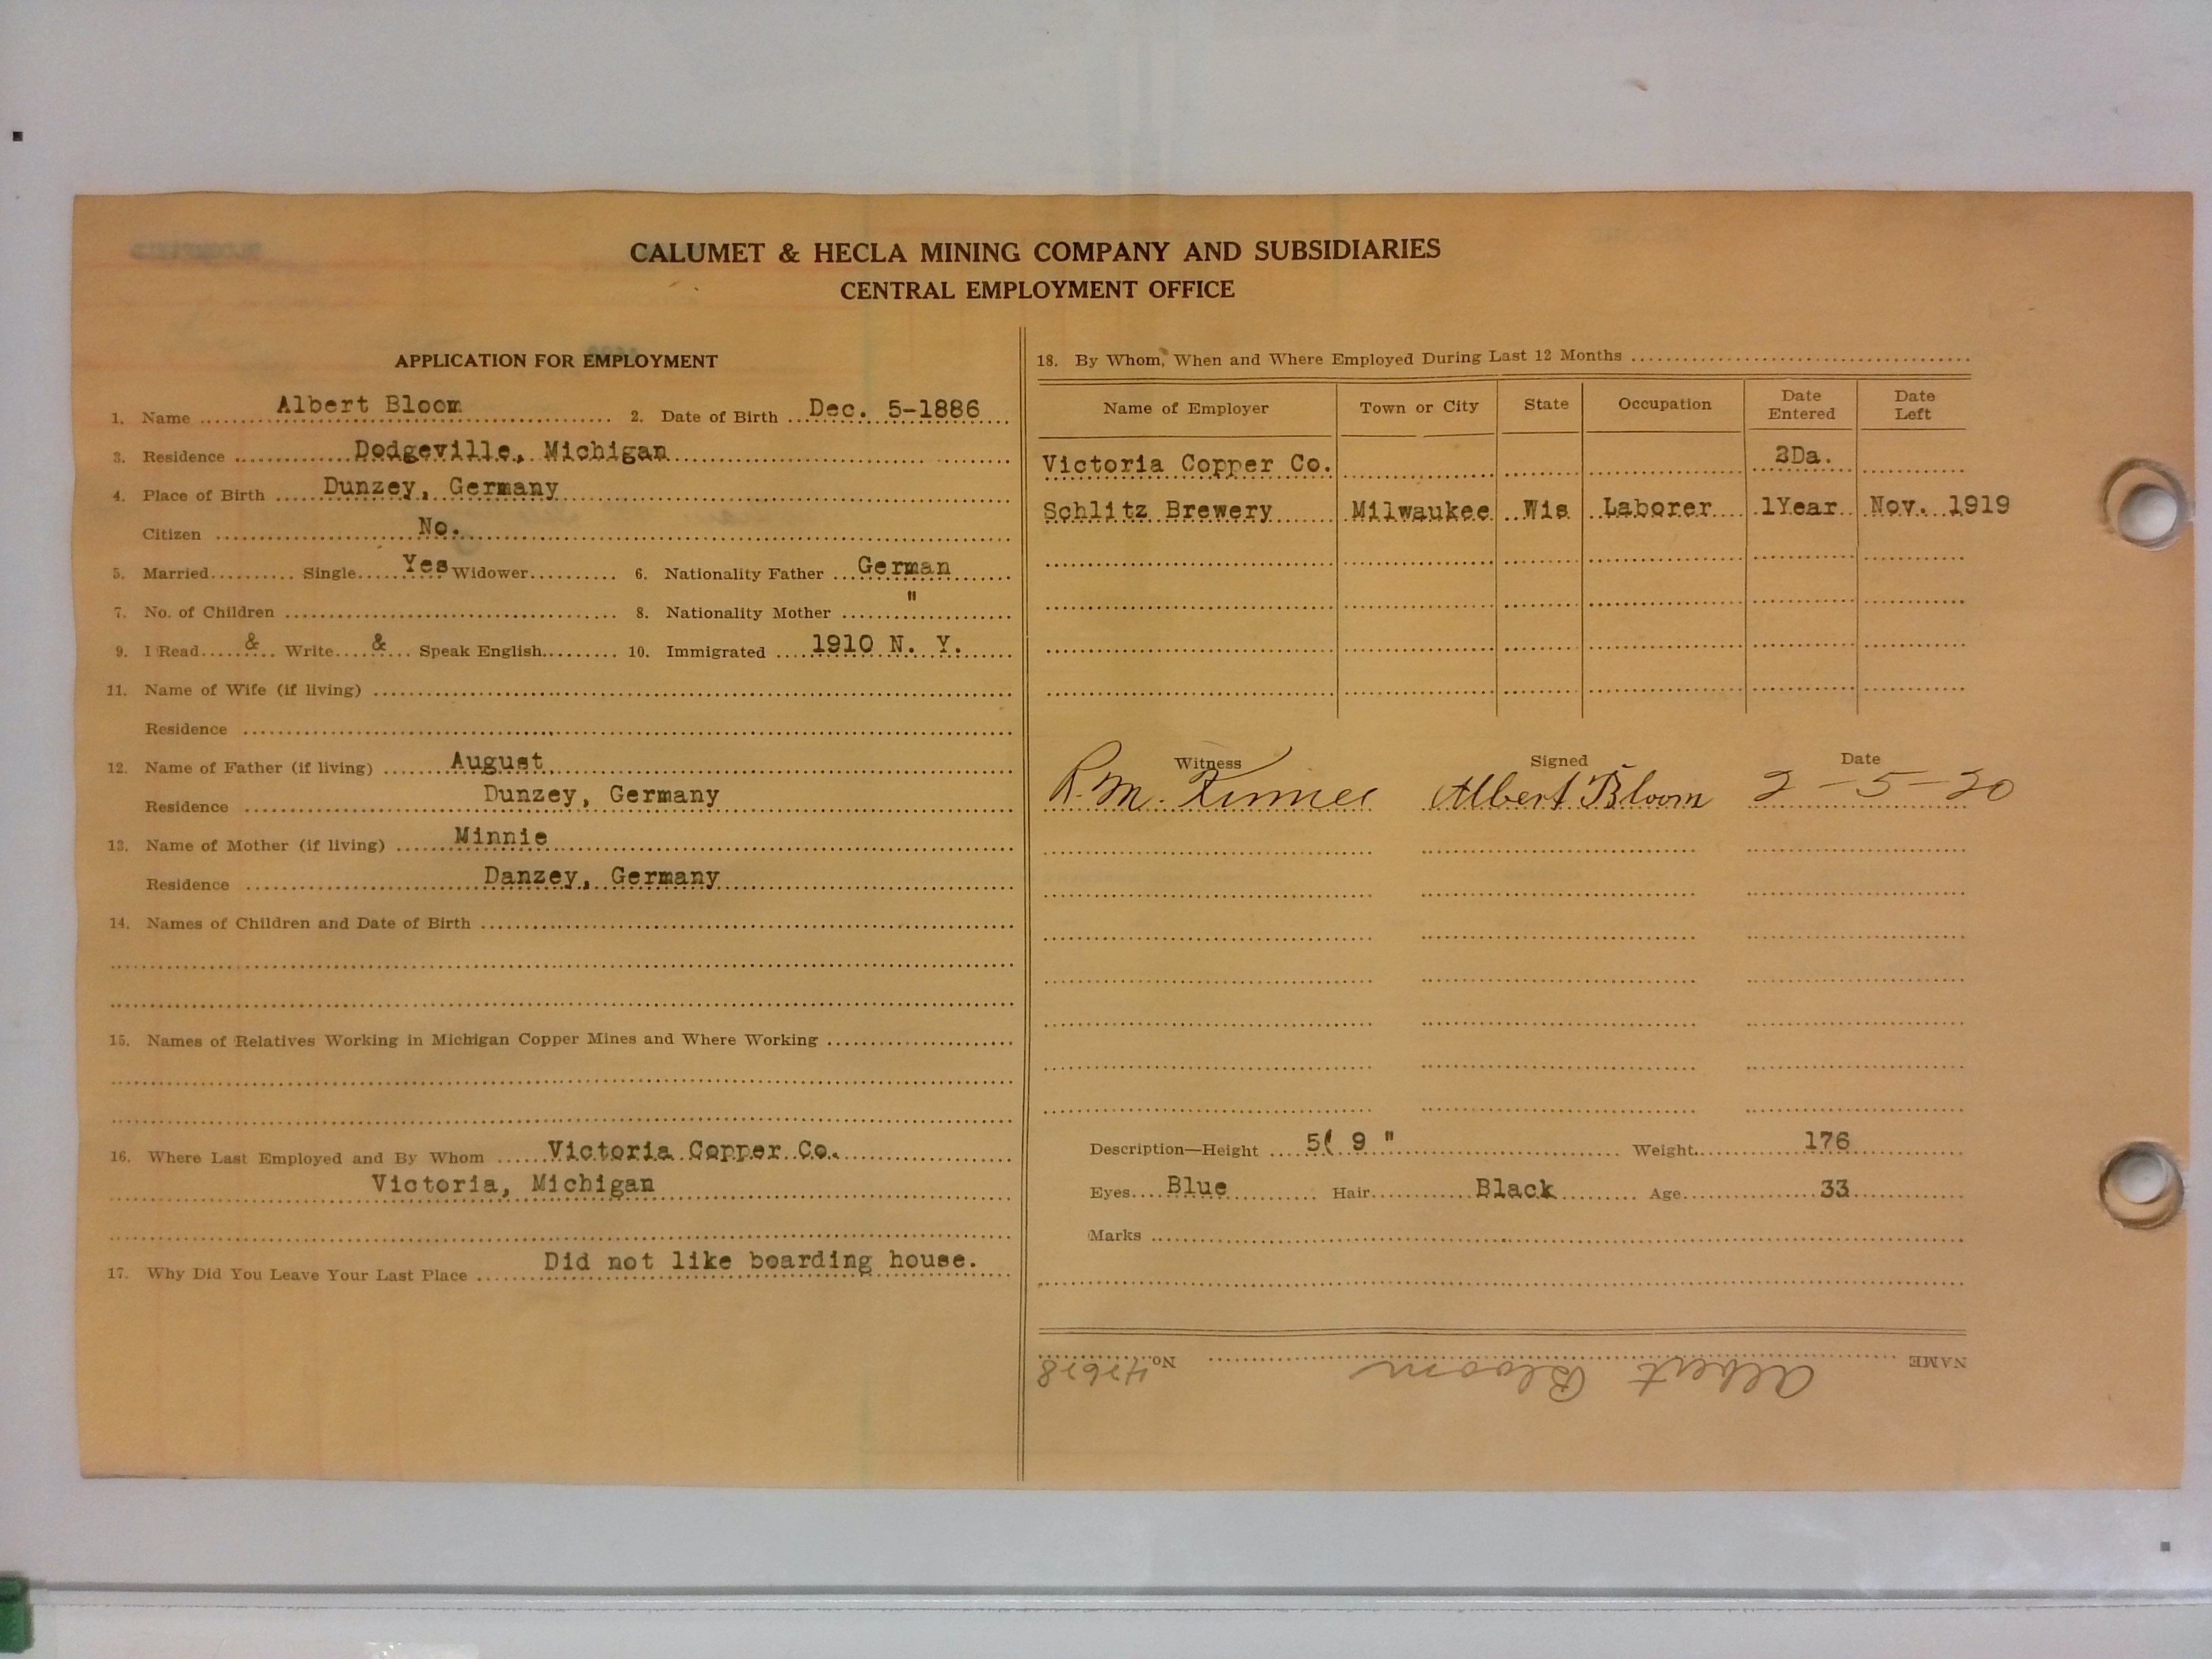 CALUMET & HECLA MINING COMPANY AND SUBSIDIARIES
CENTRAL EMPLOYMENT OFFICE
APPLICATION FOR EMPLOYMENT
1. Name Albert Bloom 2. Date of Birth Dec. 5-1886
3. Residence Dodgeville, Michigan
4. Place of Birth Dunzey, Germany
Citizen No.
5. Married Single Yes Widower 6. Nationality Father German
7. No. of Children 8. Nationality Mother "
9. I Read & Write & Speak English 10. Immigrated 1910 N. Y.
11. Name of Wife (if living)
Residence
12. Name of Father (if living) August
Residence Dunzey, Germany
13. Name of Mother (if living) Minnie
Residence Danzey, Germany
14. Names of Children and Date of Birth
15. Names of Relatives Working in Michigan Copper Mines and Where Working
16. Where Last Employed and By Whom Victoria Copper Co.
Victoria, Michigan
17. Why Did You Leave Your Last Place Did not like boarding house.
18. By Whom, When and Where Employed During Last 12 Months
Name of Employer Town or City State Occupation Date Entered Date Left
Victoria Copper Co. 2Da.
Schlitz Brewery Milwaukee Wis Laborer 1Year Nov. 1919
Witness Signed Date
R. M. Albert Bloom 2-5-20
Description—Height 5( 9 " Weight 176
Eyes Blue Hair Black Age 33
Marks
NAME Albert Bloom No.